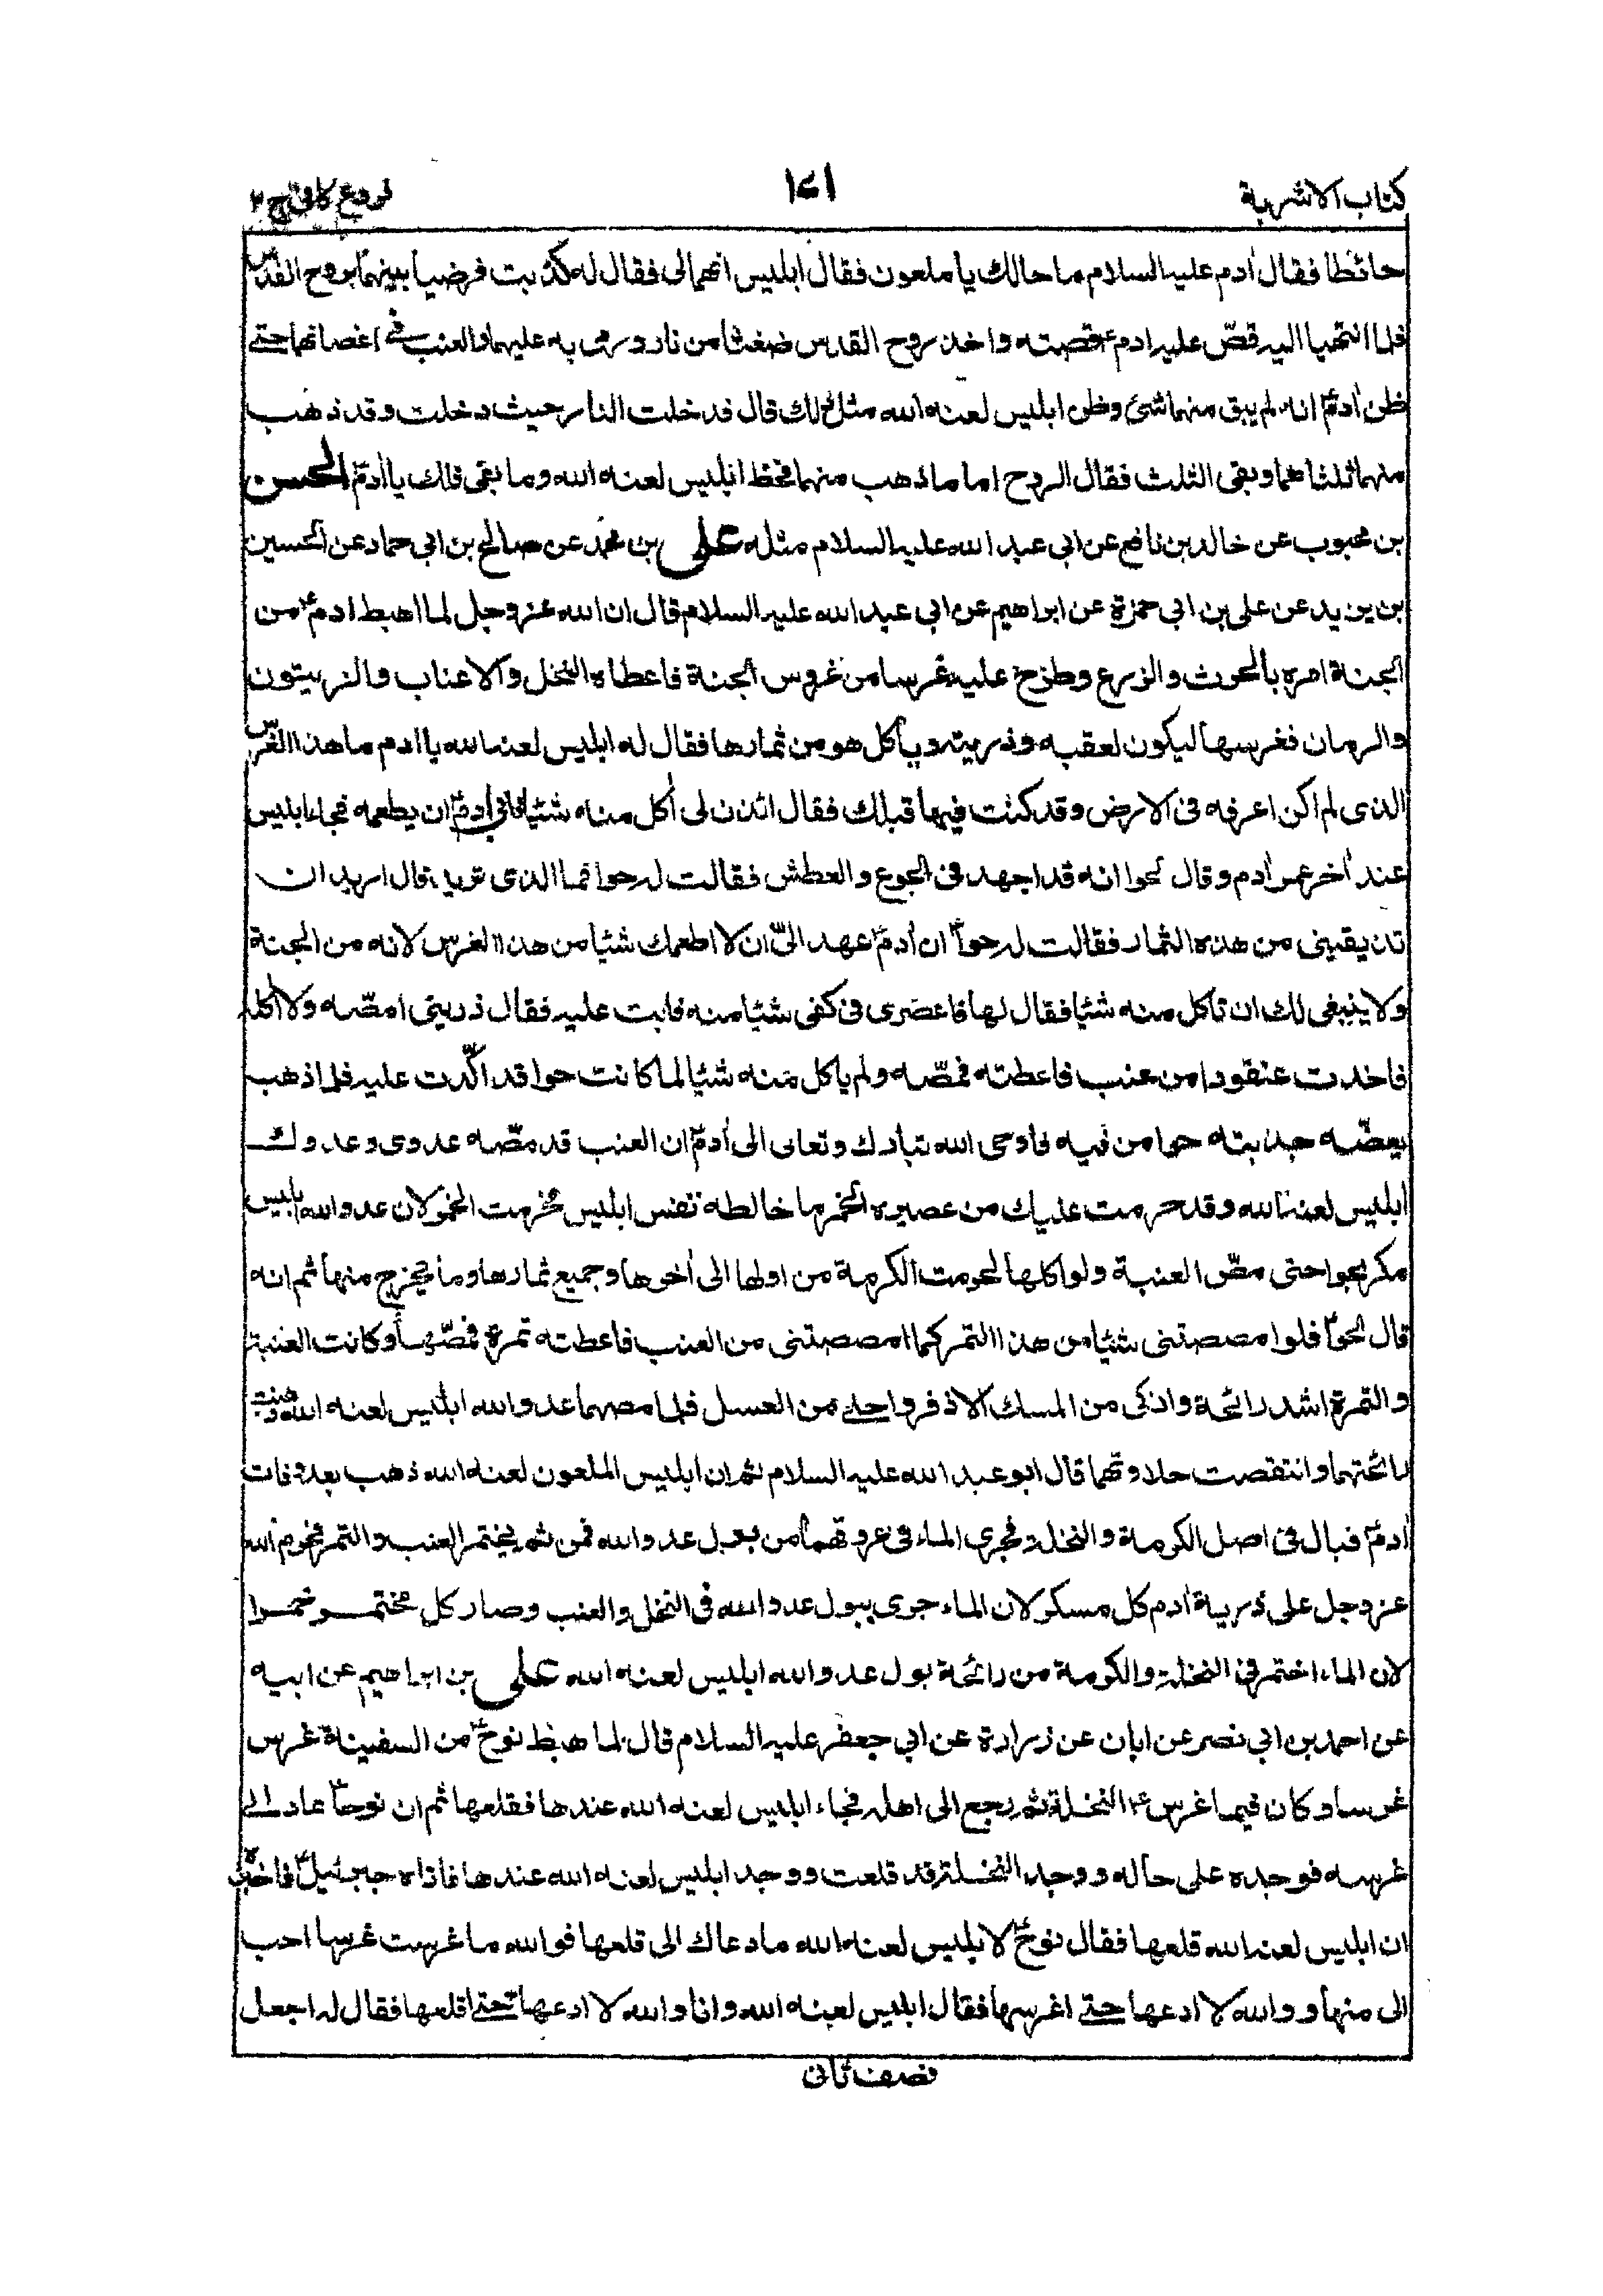 كتاب الاشربة ١٤١ فروع كافي ج ٢
حائطا فقال اٰدم عليه السلام ما حالك يا ملعون فقال ابليس انهما لى فقال له كذبت فرضيا بينهما بروح القدس
فلما انتهيا اليه قصّ عليه ادم ع قصته واخذ روح القدس ضغثا من نار ورمى به عليهما والعنب فى اغصانهما حتى
ظن اٰدم ع انه لم يبق منهما شئ وظن ابليس لعنه الله مثل ذلك قال فدخلت النار حيث دخلت وقد ذهب
منهما ثلثاهما وبقى الثلث فقال الروح اما ما ذهب منهما فحظ ابليس لعنه الله وما بقى فلك يا اٰدم ع الحسن
بن محبوب عن خالد بن نافع عن ابى عبد الله عليه السلام مثله على بن محمد عن صالح بن ابى حماد عن الحسين
بن يزيد عن على بن ابى حمزة عن ابراهيم عن ابى عبد الله عليه السلام قال ان الله عز وجل لما اهبط ادم ع من
الجنة امره بالحرث والزرع وطرح عليه غرسا من غروس الجنة فاعطاه النخل والاعناب والزيتون
والرمان فغرسها ليكون لعقبه وذريته وياكل هو من ثمارها فقال له ابليس لعنه الله يا ادم ما هذا الغرس
الذى لم اكن اعرفه فى الارض وقد كنت فيها قبلك فقال ائذن لى اٰكل منه شيئا فابى اٰدم ع ان يطعمه فجاء ابليس
عند اٰخر عمر اٰدم وقال لحوا انه قد اجهد فى الجوع والعطش فقالت له حوا فما الذى تريد قال اريد ان
تذيقينى من هذه الثمار فقالت له حوا ان اٰدم ع عهد الىّ ان لا اطعمك شيئا من هذا الغرس لانه من الجنة
ولا ينبغى لك ان تاكل منه شيئا فقال لها فاعصرى فى كفى شيئا منه فابت عليه فقال ذرينى امصّه ولا اٰكله
فاخذت عنقودا من عنب فاعطته فمصّه ولم ياكل منه شيئا لما كانت حوا قد اكّدت عليه فلما ذهب
يعضّه جذبته حوا من فيه فاوحى الله تبارك وتعالى الى اٰدم ع ان العنب قد مصّه عدوى وعدوك
ابليس لعنه الله وقد حرمت عليك من عصيره الخمر ما خالطه نفس ابليس فحرمت الخمر لان عدو الله ابليس
مكر بحوا حتى مصّ العنبة ولو اكلها لحرمت الكرمة من اولها الى اٰخرها وجميع ثمارها وما يخرج منها ثم انه
قال لحوا فلو امصصتنى شيئا من هذا التمر كما امصصتنى من العنب فاعطته تمرة فمصّها وكانت العنبة
والتمرة اشد رائحة وازكى من المسك الاذفر واحلى من العسل فلما مصهما عدو الله ابليس لعنه الله ذهبت
رائحتهما وانتقصت حلاوتهما قال ابو عبد الله عليه السلام ثم ان ابليس الملعون لعنه الله ذهب بعد وفات
اٰدم ع فبال فى اصل الكرمة والنخلة فجرى الماء فى عروقهما من بول عدو الله فمن ثم يختمر العنب والتمر فحرم الله
عز وجل على ذرية اٰدم كل مسكر لان الماء جرى ببول عدو الله فى النخل والعنب وصار كل مختمر خمرا
لان الماء اختمر فى النخلة والكرمة من رائحة بول عدو الله ابليس لعنه الله على بن ابراهيم عن ابيه
عن احمد بن ابى نصر عن ابان عن زرارة عن ابى جعفر عليه السلام قال لما هبط نوح ع من السفينة غرس
غرسا وكان فيما غرس ع النخلة ثم رجع الى اهله فجاء ابليس لعنه الله عندها فقلعها ثم ان نوحا ع عاد الى
غرسه فوجده على حاله ووجد النخلة قد قلعت ووجد ابليس لعنه الله عندها فاتاه جبرئيل ع فاخبره
ان ابليس لعنه الله قلعها فقال نوح ع لابليس لعنه الله ما دعاك الى قلعها فوالله ما غرست غرسا احب
الى منها ووالله لا ادعها حتى اغرسها فقال ابليس لعنه الله وانا والله لا ادعها حتى اقلعها فقال له اجعل
نصف ثانى